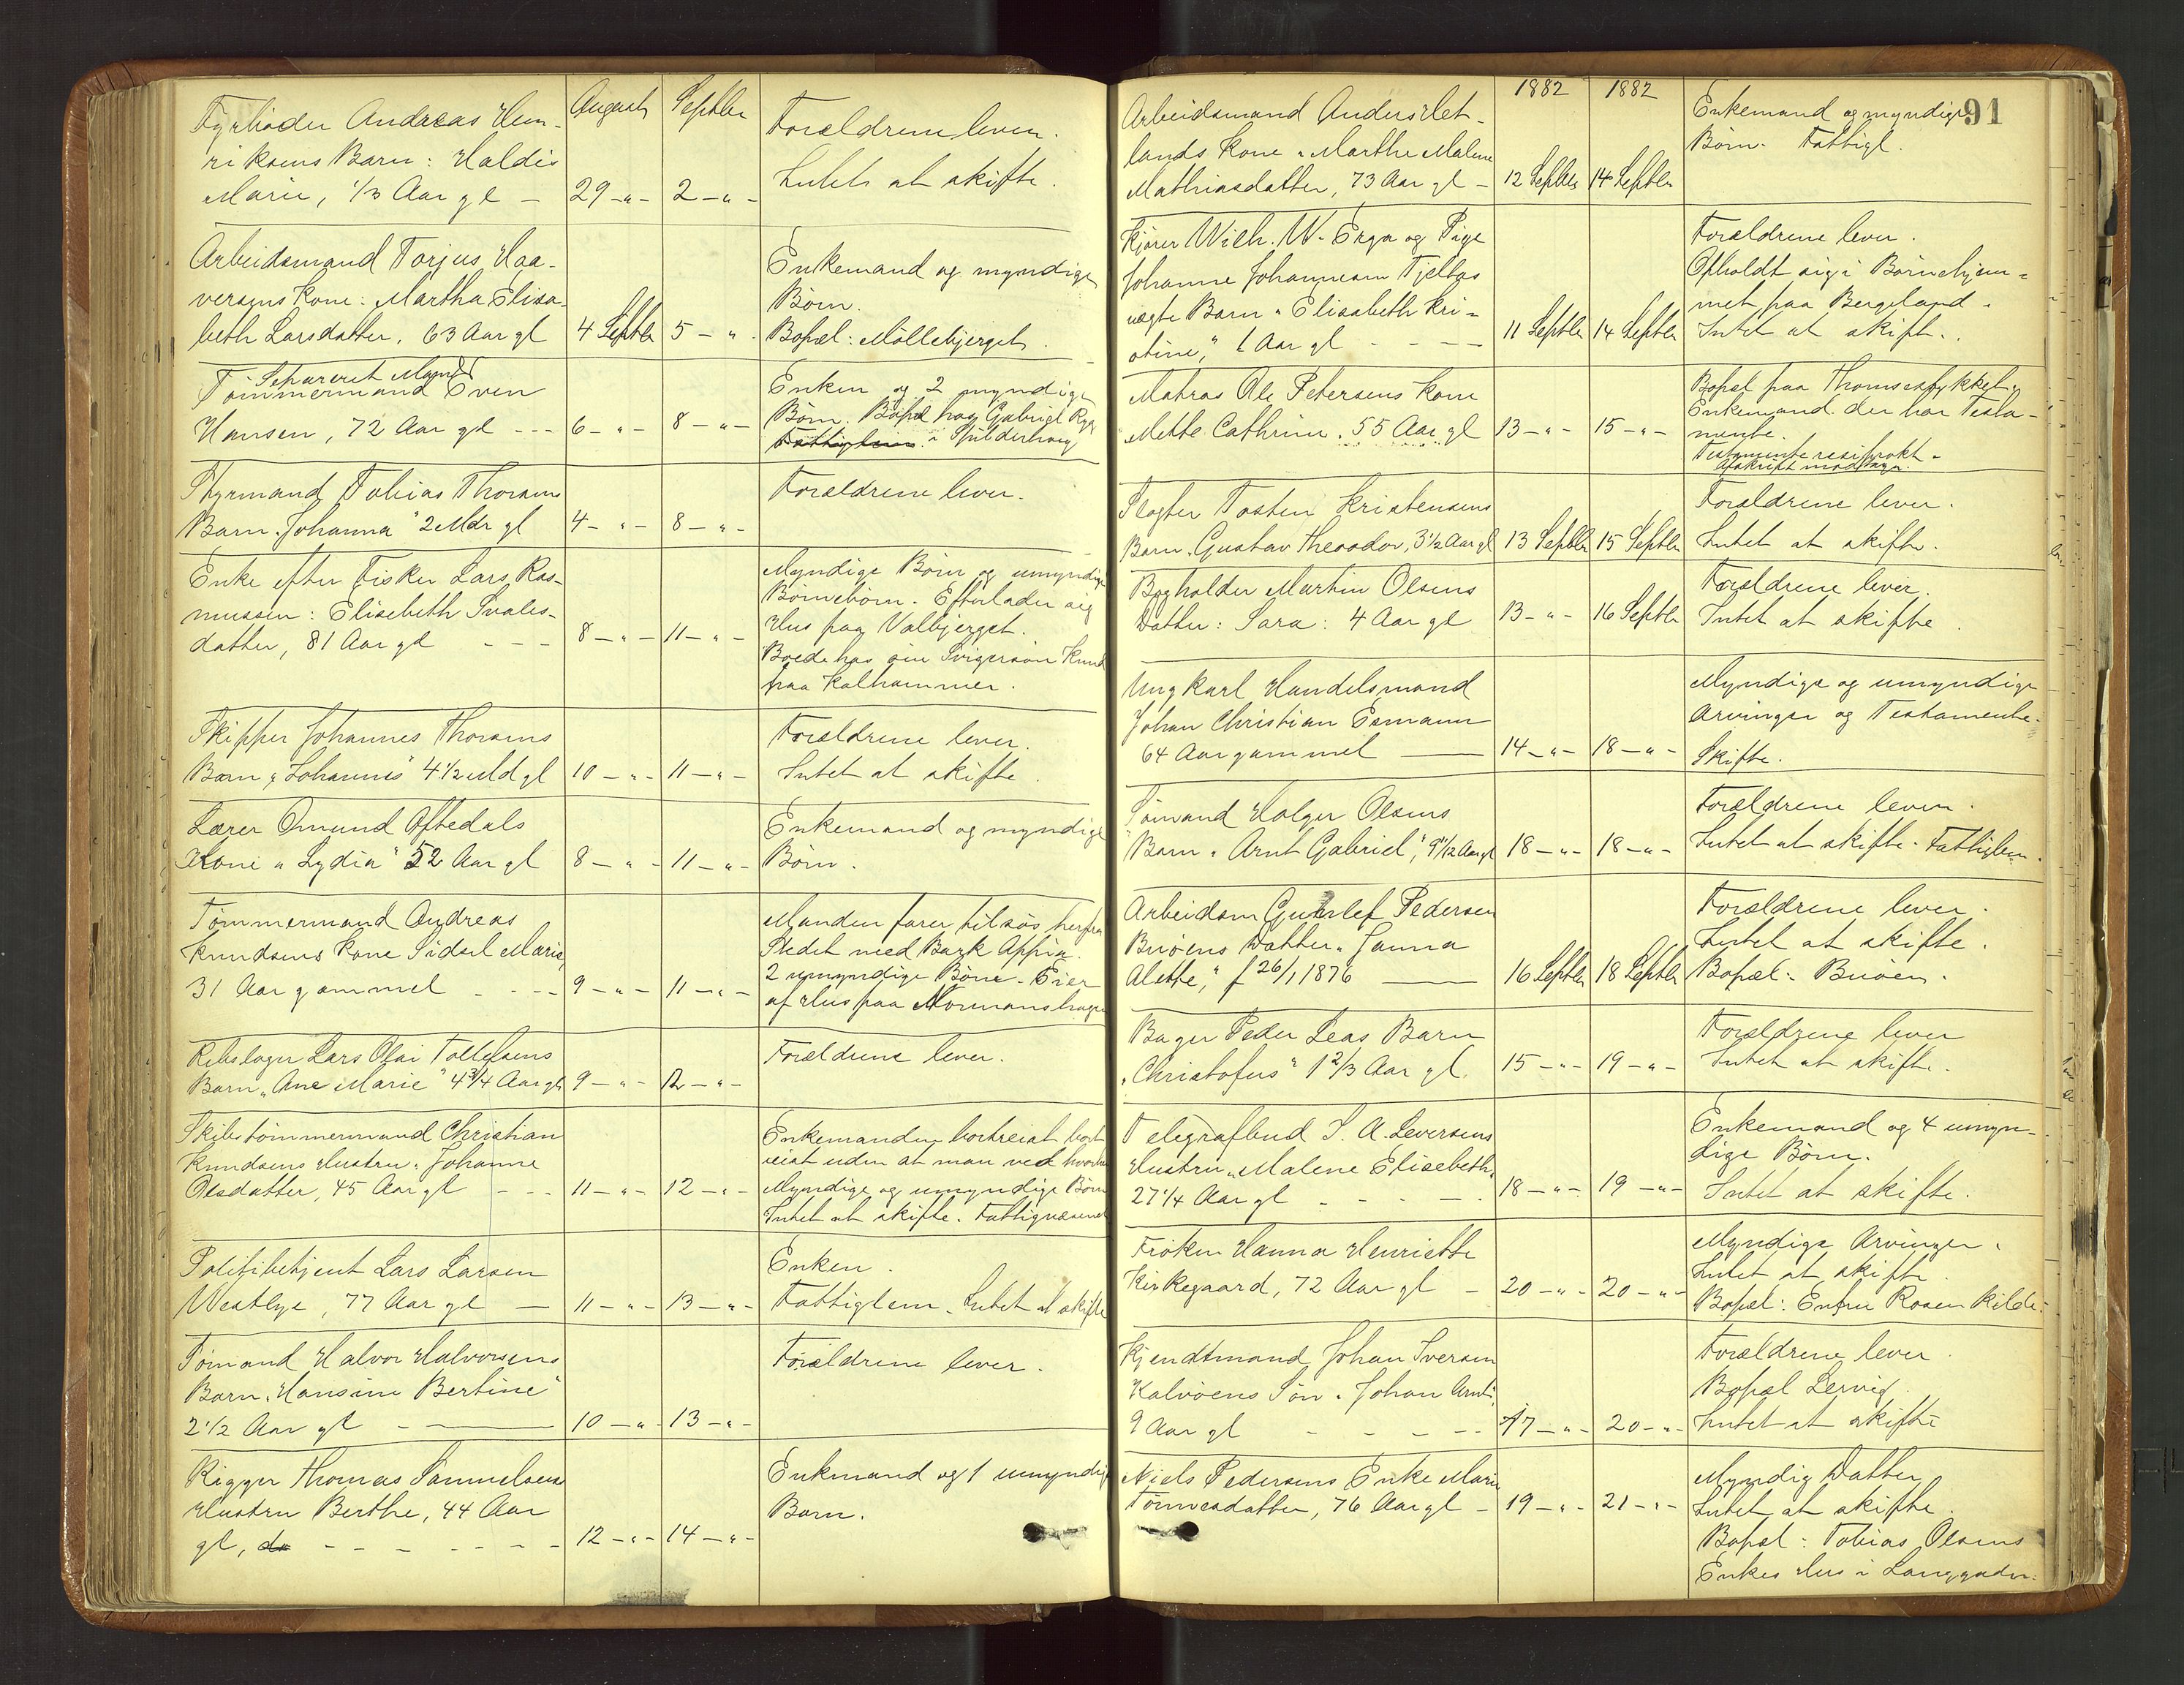 August Septbr
Fyrbøder Andreas Hen-
riksens Barn: Haldis
Marie, 1/3 Aar gl – 29 – " – 2 – " –
Forældrene lever.
Intet at skifte.
Arbeidsmand Torjus Haa-
versens Kone: Martha Elisa-
beth Larsdatter, 63 Aar gl 4 Septbr 5 – " –
Enkemand og myndige
Børn.
Bopæl: Møllebjerget.
Separeret Mand
Tømmermand Sven
Hansen, 72 Aar gl --- 6 – " – 8 – " –
Enken og 2 myndige
Børn. Bopæl hos Gabriel
Fattiglem i Spilderhaug
Styrmand Tobias Thorsens
Barn "Johanna" 2 Mdr gl 4 – " – 8 – " –
Forældrene lever.
Enke efter Fisker Lars Ras-
mussen: Elisebeth Svales-
datter, 81 Aar gl --- 8 – " – 11 – " –
Myndige Børn og umyndige
Børnebørn. Efterlader sig
Hus paa Valbjerget.
Boede hos sin Svigersøn Knud
paa Kalhammer.
Skipper Johannes Thorsens
Barn "Johannes" 4 1/2 Md gl 10 – " – 11 – " –
Forældrene lever.
Intet at skifte.
Lærer Omund Aftedals
Kone "Lydia" 52 Aar gl 8 – " – 11 – " –
Enkemand og myndige
Børn.
Tømmermand Andreas
Knudsens Kone Sidsel Marie,
31 Aar gammel --- 9 – " – 11 – " –
Manden farer tilsøs herfra
Stedet med Bark Appia.
2 umyndige Børn. Eier
af Hus paa Normanshagen
Rebslager Lars Olai Tollefsens
Barn "Ane Marie" 4 3/4 Aar gl 9 – " – 12 – " –
Forældrene lever.
Skibstømmermand Christian
Knudsens Hustru "Johanne
Olsdatter, 45 Aar gl --- 11 – " – 12 – " –
Enkemanden bortreist bort
reist uden at man ved hvorhen
Myndige og umyndige Børn
Intet at skifte. Fattigvæsenet
Politibetjent Lars Larsen
Westbye, 77 Aar gl – 11 – " – 13 – " –
Enken.
Fattiglem. Intet at skifte
Sømand Halvor Halvorsens
Barn "Hansine Bertine"
2 1/2 Aar gl – 10 – " – 13 – " –
Forældrene lever.
Rigger Thomas Samuelsens
Hustru Berthe, 44 Aar
gl, do - - - - - - 12 – " – 14 – " –
Enkemand og 1 umyndig
Barn.
1882 1882
91
Arbeidsmand Anders Het-
lands Kone "Marthe Malene
Mathiasdatter, 73 Aar gl – 12 Septbr 14 Septbr
Enkemand og myndige
Børn. Fattigl.
Kjører Wilh. W. Erga og Pige
Johanne Johannesen Tjeltas
uægte Barn "Elisabeth Kri-
stine", 1 Aar gl - - - - 11 Septbr 14 Septbr
Forældrene lever.
Opholdt sig i Børnehjem-
met paa Bergeland.
Intet at skifte.
Matros Ole Petersens Kone
"Mette Cathrine, 55 Aar gl 13 – " – 15 – " –
Bopæl paa Thomsestykket
Enkemand der har Testa-
mente.
Testamente resiprokt.
Afskrift modtagn.
Slagter Tosten Kristensens
Barn "Gustav Theodor, 3 1/2 Aar gl 13 Septbr 15 Septbr
Forældrene lever.
Intet at skifte.
Bogholder Martin Olsens
Datter: Sara: 4 Aar gl 13 – " – 16 Septbr
Forældrene lever.
Intet at skifte.
Ungkarl Handelsmand
Johan Christian Esmann
64 Aar gammel – 14 – " – 18 – " –
Myndige og umyndige
Arvinger og Testamente.
Skifte.
Sømand Holger Olsens
Barn "Arnt Gabriel", 9/12 Aar gl 18 – " – 18 – " –
Forældrene lever.
Intet at skifte. Fattiglem.
Arbeidsm Gunlef Pedersen
Buøens Datter "Janna
Alette," f 26/1 1876 – 16 Septbr 18 Septbr
Forældrene lever.
Intet at skifte.
Bopæl: Buøen.
Bager Peder Leas Barn
"Christofus" 1 2/3 Aar gl 15 – " – 19 – " –
Forældrene lever
Intet at skifte.
Telegrafbud S. A. Seversens
Hustru "Malene Elisebeth,
27 1/4 Aar gl - - - 18 – " – 19 – " –
Enkemand og 4 umyn-
dige Børn.
Intet at skifte.
Frøken Hanna Henriette
Kirkegaard, 72 Aar gl – 20 – " – 20 – " –
Myndige Arvinger.
Intet at skifte.
Bopæl: Enfru Rosenkilde:
Kjendtmand Johan Iversen
Kalvøens Søn "Johan Arnt",
9 Aar gl - - - - 17 – " – 20 – " –
Forældrene lever.
Bopæl Lervig.
Intet at skifte
Niels Pedersens Enke Marie
Tønnesdatter, 76 Aar gl – 19 – " – 21 – " –
Myndig Datter
Intet at skifte.
Bopæl: Tobias Olsens
Enkes Hus i Langgaden.